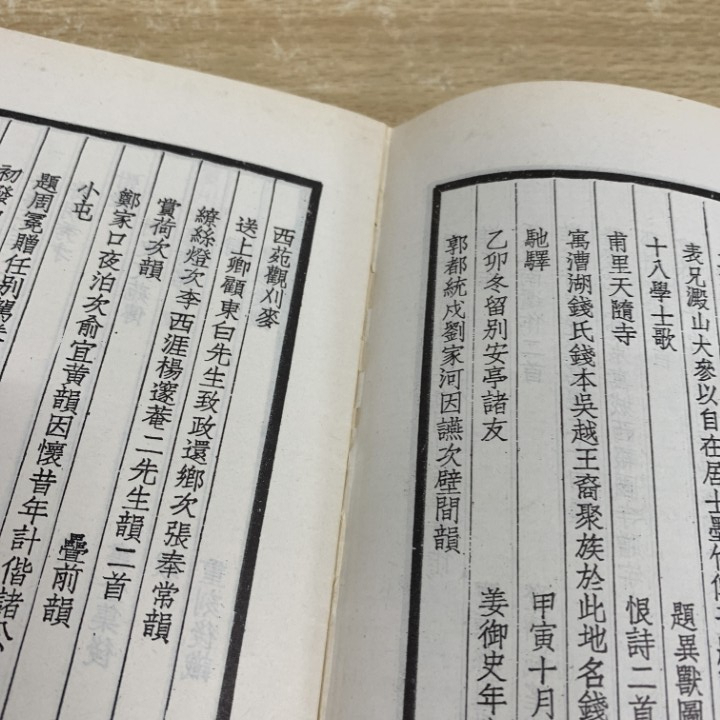 表兄澱山大參以自在居士墨竹
十八學士歌 題異獸圖
甫里天隨寺 恨詩二首
寓漕湖錢氏錢本吳越王裔聚族於此地名錢
馳驛 甲寅十月
乙卯冬留別安亭諸友 姜御史年
郭都統戍劉家河因讌次壁間韻
西苑觀刈麥
送上卿顧東白先生致政還鄉次張奉常韻
繚絲燈次李西涯楊邃菴二先生韻二首
賞荷次韻
鄭家口夜泊次俞宜黃韻因懷昔年計偕諸公
小屯 疊前韻
題周冕贈任別駕卷
初發